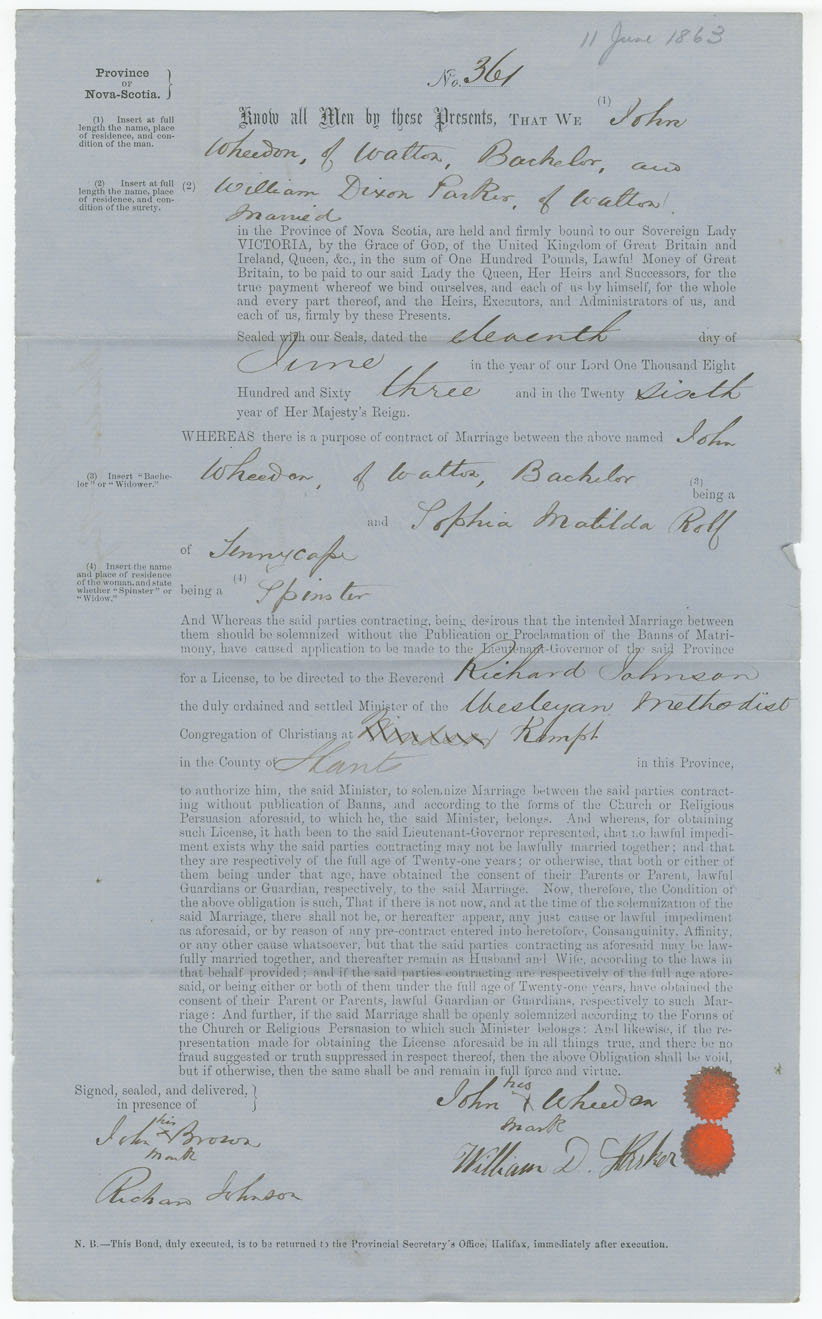 11 June 1863
Province
OF
Nova-Scotia.
No. 361
(1) Insert at full
length the name, place
of residence, and con-
dition of the man.
Know all Men by these Presents, THAT WE (1) John
Wheedon, of Walton, Bachelor, and
(2) Insert at full
length the name, place
of residence, and con-
dition of the surety.
(2) William Dixon Parker, of Walton
Married
in the Province of Nova Scotia, are held and firmly bound to our Sovereign Lady
VICTORIA, by the Grace of GOD, of the United Kingdom of Great Britain and
Ireland, Queen, &c., in the sum of One Hundred Pounds, Lawful Money of Great
Britain, to be paid to our said Lady the Queen, Her Heirs and Successors, for the
true payment whereof we bind ourselves, and each of us by himself, for the whole
and every part thereof, and the Heirs, Executors, and Administrators of us, and
each of us, firmly by these Presents.
Sealed with our Seals, dated the eleventh day of
June in the year of our Lord One Thousand Eight
Hundred and Sixty three and in the Twenty sixth
year of Her Majesty's Reign.
WHEREAS there is a purpose of contract of Marriage between the above named John
Wheeden, of Walton, Bachelor
(3) Insert "Bache-
lor" or "Widower."
(3)
being a
and Sophia Matilda Rolf
of Tennycape
(4) Insert the name
and place of residence
of the woman, and state
whether "Spinster" or
"Widow."
being a (4) Spinster
And Whereas the said parties contracting, being desirous that the intended Marriage between
them should be solemnized without the Publication or Proclamation of the Banns of Matri-
mony, have caused application to be made to the Lieutenant-Governor of the said Province
for a License, to be directed to the Reverend Richard Johnson
the duly ordained and settled Minister of the Wesleyan Methodist
Congregation of Christians at Windsor Kempt
in the County of Hants in this Province,
to authorize him, the said Minister, to solemnize Marriage between the said parties contract-
ing without publication of Banns, and according to the forms of the Church or Religious
Persuasion aforesaid, to which he, the said Minister, belongs. And whereas, for obtaining
such License, it hath been to the said Lieutenant-Governor represented, that no lawful impedi-
ment exists why the said parties contracting may not be lawfully married together; and that
they are respectively of the full age of Twenty-one years; or otherwise, that both or either of
them being under that age, have obtained the consent of their Parents or Parent, lawful
Guardians or Guardian, respectively, to the said Marriage. Now, therefore, the Condition of
the above obligation is such, That if there is not now, and at the time of the solemnization of the
said Marriage, there shall not be, or hereafter appear, any just cause or lawful impediment
as aforesaid, or by reason of any pre-contract entered into heretofore, Consanguinity, Affinity,
or any other cause whatsoever, but that the said parties contracting as aforesaid may be law-
fully married together, and thereafter remain as Husband and Wife, according to the laws in
that behalf provided; and if the said parties contracting are respectively of the full age afore-
said, or being either or both of them under the full age of Twenty-one years, have obtained the
consent of their Parent or Parents, lawful Guardian or Guardians, respectively to such Mar-
riage: And further, if the said Marriage shall be openly solemnized according to the Forms of
the Church or Religious Persuasion to which such Minister belongs: And likewise, if the re-
presentation made for obtaining the License aforesaid be in all things true, and there be no
fraud suggested or truth suppressed in respect thereof, then the above Obligation shall be void,
but if otherwise, then the same shall be and remain in full force and virtue.
Signed, sealed, and delivered,
in presence of
his
John X Wheeden
mark
his
John X Brown
mark
William D. Parker
Richard Johnson
N. B.—This Bond, duly executed, is to be returned to the Provincial Secretary's Office, Halifax, immediately after execution.